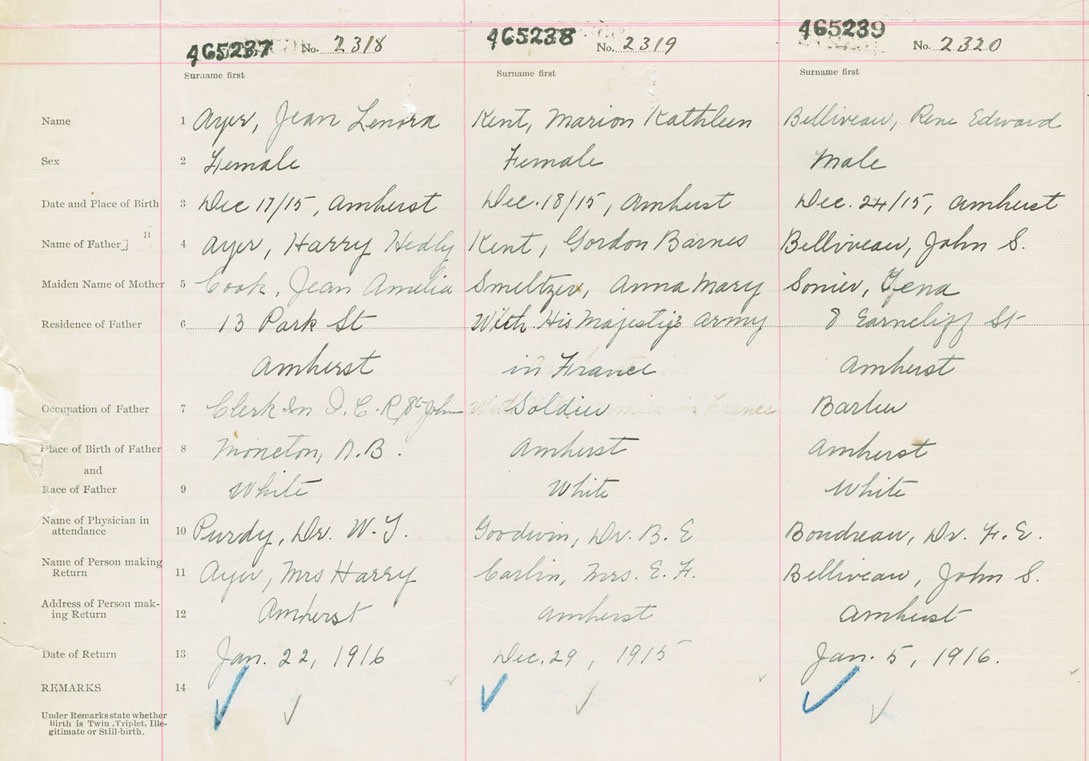 465237 No. 2318 465238 No. 2319 465239 No. 2320
Surname first Surname first Surname first
Name 1 Ayer, Jean Lenora Kent, Marion Kathleen Belliveau, Rene Edward
Sex 2 Female Female Male
Date and Place of Birth 3 Dec 17/15, Amherst Dec. 18/15, Amherst Dec. 24/15, Amherst
Name of Father 4 Ayer, Harry Hedly Kent, Gordon Barnes Belliveau, John S.
Maiden Name of Mother 5 Cook, Jean Amelia Smeltzer, Anna Mary Sonier, Zena
Residence of Father 6 13 Park St With His Majesty's Army 8 Earncliff St
Amherst in France Amherst
Occupation of Father 7 Clerk In I.C.R, St John Soldier Barber
Place of Birth of Father 8 Moncton, N.B. Amherst Amherst
and
Race of Father 9 White White White
Name of Physician in
attendance 10 Purdy, Dr. W.T. Goodwin, Dr. B.E Boudreau, Dr. F.E.
Name of Person making
Return 11 Ayer, Mrs Harry Carlin, Mrs. E.F. Belliveau, John S.
Address of Person mak-
ing Return 12 Amherst Amherst Amherst
Date of Return 13 Jan. 22, 1916 Dec. 29, 1915 Jan. 5, 1916.
REMARKS 14
Under Remarks state whether
Birth is Twin, Triplet, Ille-
gitimate or Still-birth.